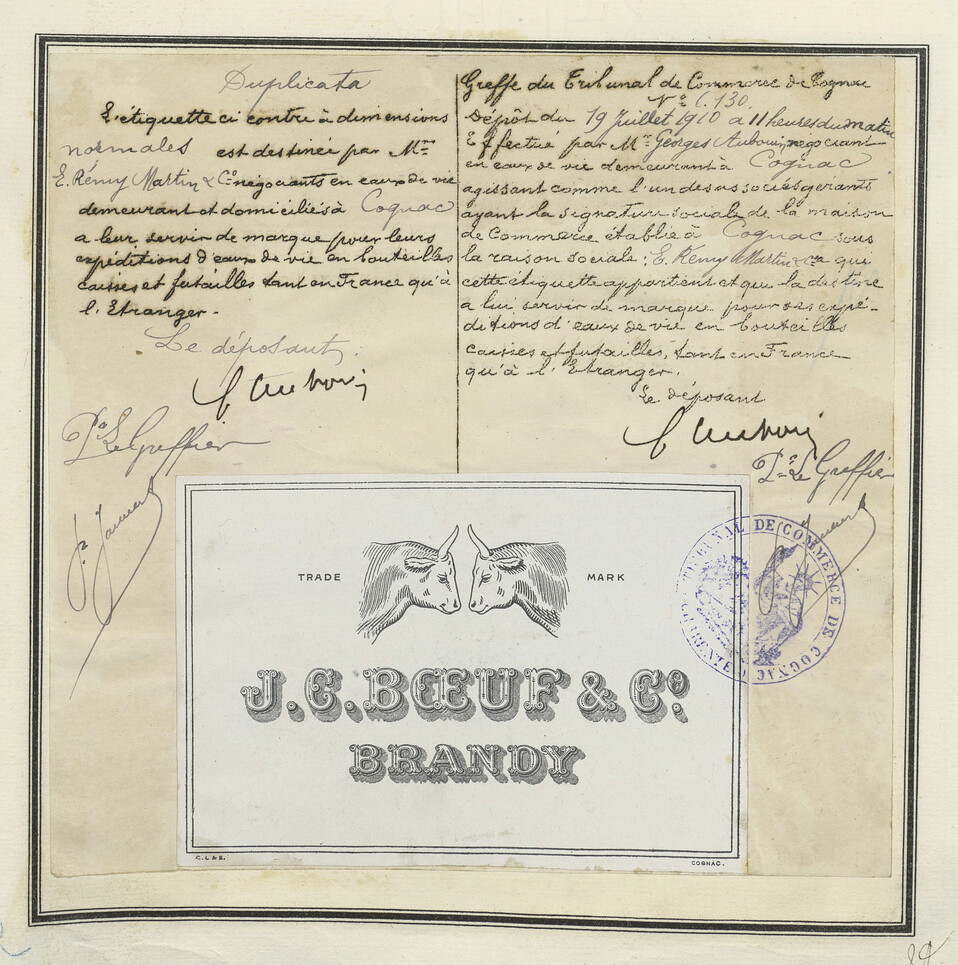 Duplicata
L'étiquette ci contre à dimensions
normales est destinée par Mrs
E. Rémy Martin & Co négociants en eaux de vie
demeurant et domiciliés à Cognac
a leur servir de marque pour leurs
expéditions d'eaux de vie en bouteilles
caisses et futailles tant en France qu'à
l'Etranger.
Le déposant,
Pr Le Greffier
Greffe du Tribunal de Commerce de Cognac
No C. 130.
Dépôt du 19 Juillet 1910 a 11 heures du matin
Effectué par Mr Georges Auboin, négociant
en eaux de vie demeurant à Cognac
agissant comme l'un des associés gérants
ayant la signature sociale de la maison
de Commerce établie à Cognac sous
la raison sociale: E. Remy Martin & Cie qui
cette étiquette appartient et qui la destine
a lui servir de marque pour ses expé-
ditions d'eaux de vie en bouteilles
caisses et futailles, tant en France
qu'à l'Etranger.
Le déposant
Pr Le Greffier
TRIBUNAL DE COMMERCE DE COGNAC
CHARENTE
TRADE MARK
J. C. BŒUF & Co.
BRANDY
C. L & B. COGNAC.